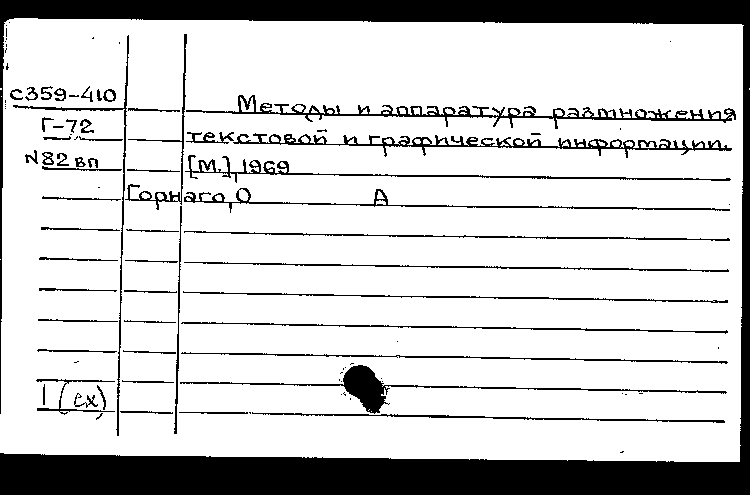 с359-410
Методы и аппаратура размножения
Г-72
текстовой и графической информации.
N82 вп
[М.], 1969
Горнаго, О А
1 (ex)